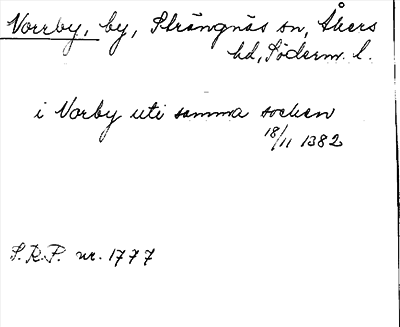 Vorrby, by, Strängnäs sn, Åkers
hd, Söderm. l.
i Norby uti samma socken
18/11 1382
S.R.P. nr. 1777